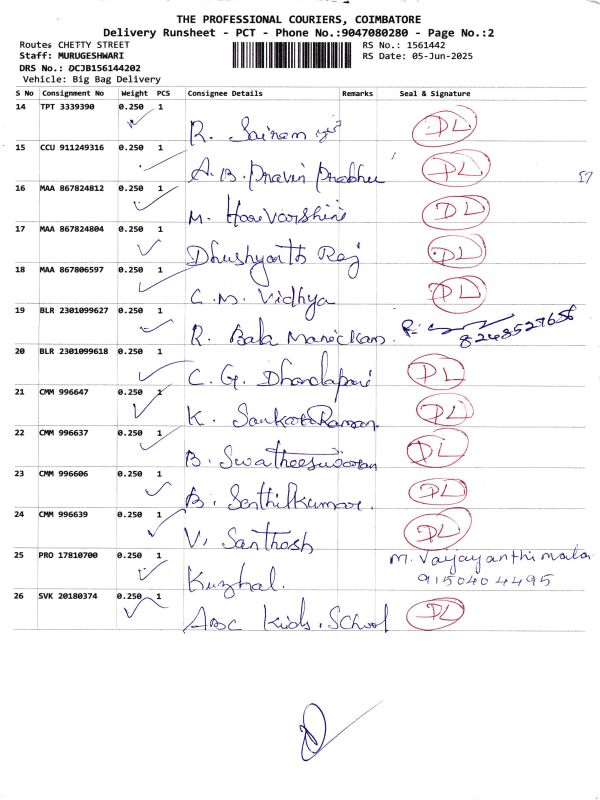 THE PROFESSIONAL COURIERS, COIMBATORE
Delivery Runsheet - PCT - Phone No.:9047080280 - Page No.:2
Route: CHETTY STREET RS No.: 1561442
Staff: MURUGESHWARI RS Date: 05-Jun-2025
DRS No.: DCJB156144202
Vehicle: Big Bag Delivery
S No Consignment No Weight PCS Consignee Details Remarks Seal & Signature
14 TPT 3339390 0.250 1
R. Sairam DL
15 CCU 911249316 0.250 1
A.B. Pravin Prabhu DL
16 MAA 867824812 0.250 1
M. Harivarshini DL
17 MAA 867824804 0.250 1
Dhushyanth Raj DL
18 MAA 867806597 0.250 1
C.M. Vidhya DL
19 BLR 2301099627 0.250 1
R. Bala Manickam 8248527656
20 BLR 2301099618 0.250 1
C.G. Dhandapani DL
21 CMM 996647 0.250 1
K. SankaraRaman DL
22 CMM 996637 0.250 1
B. Swatheeswaran DL
23 CMM 996606 0.250 1
B. Senthilkumar. DL
24 CMM 996639 0.250 1
V. Santhosh DL
25 PRO 17810700 0.250 1 M. Vaijayanthi mala
Kuzhal. 9150404495
26 SVK 20180374 0.250 1
ABC Kids. School DL